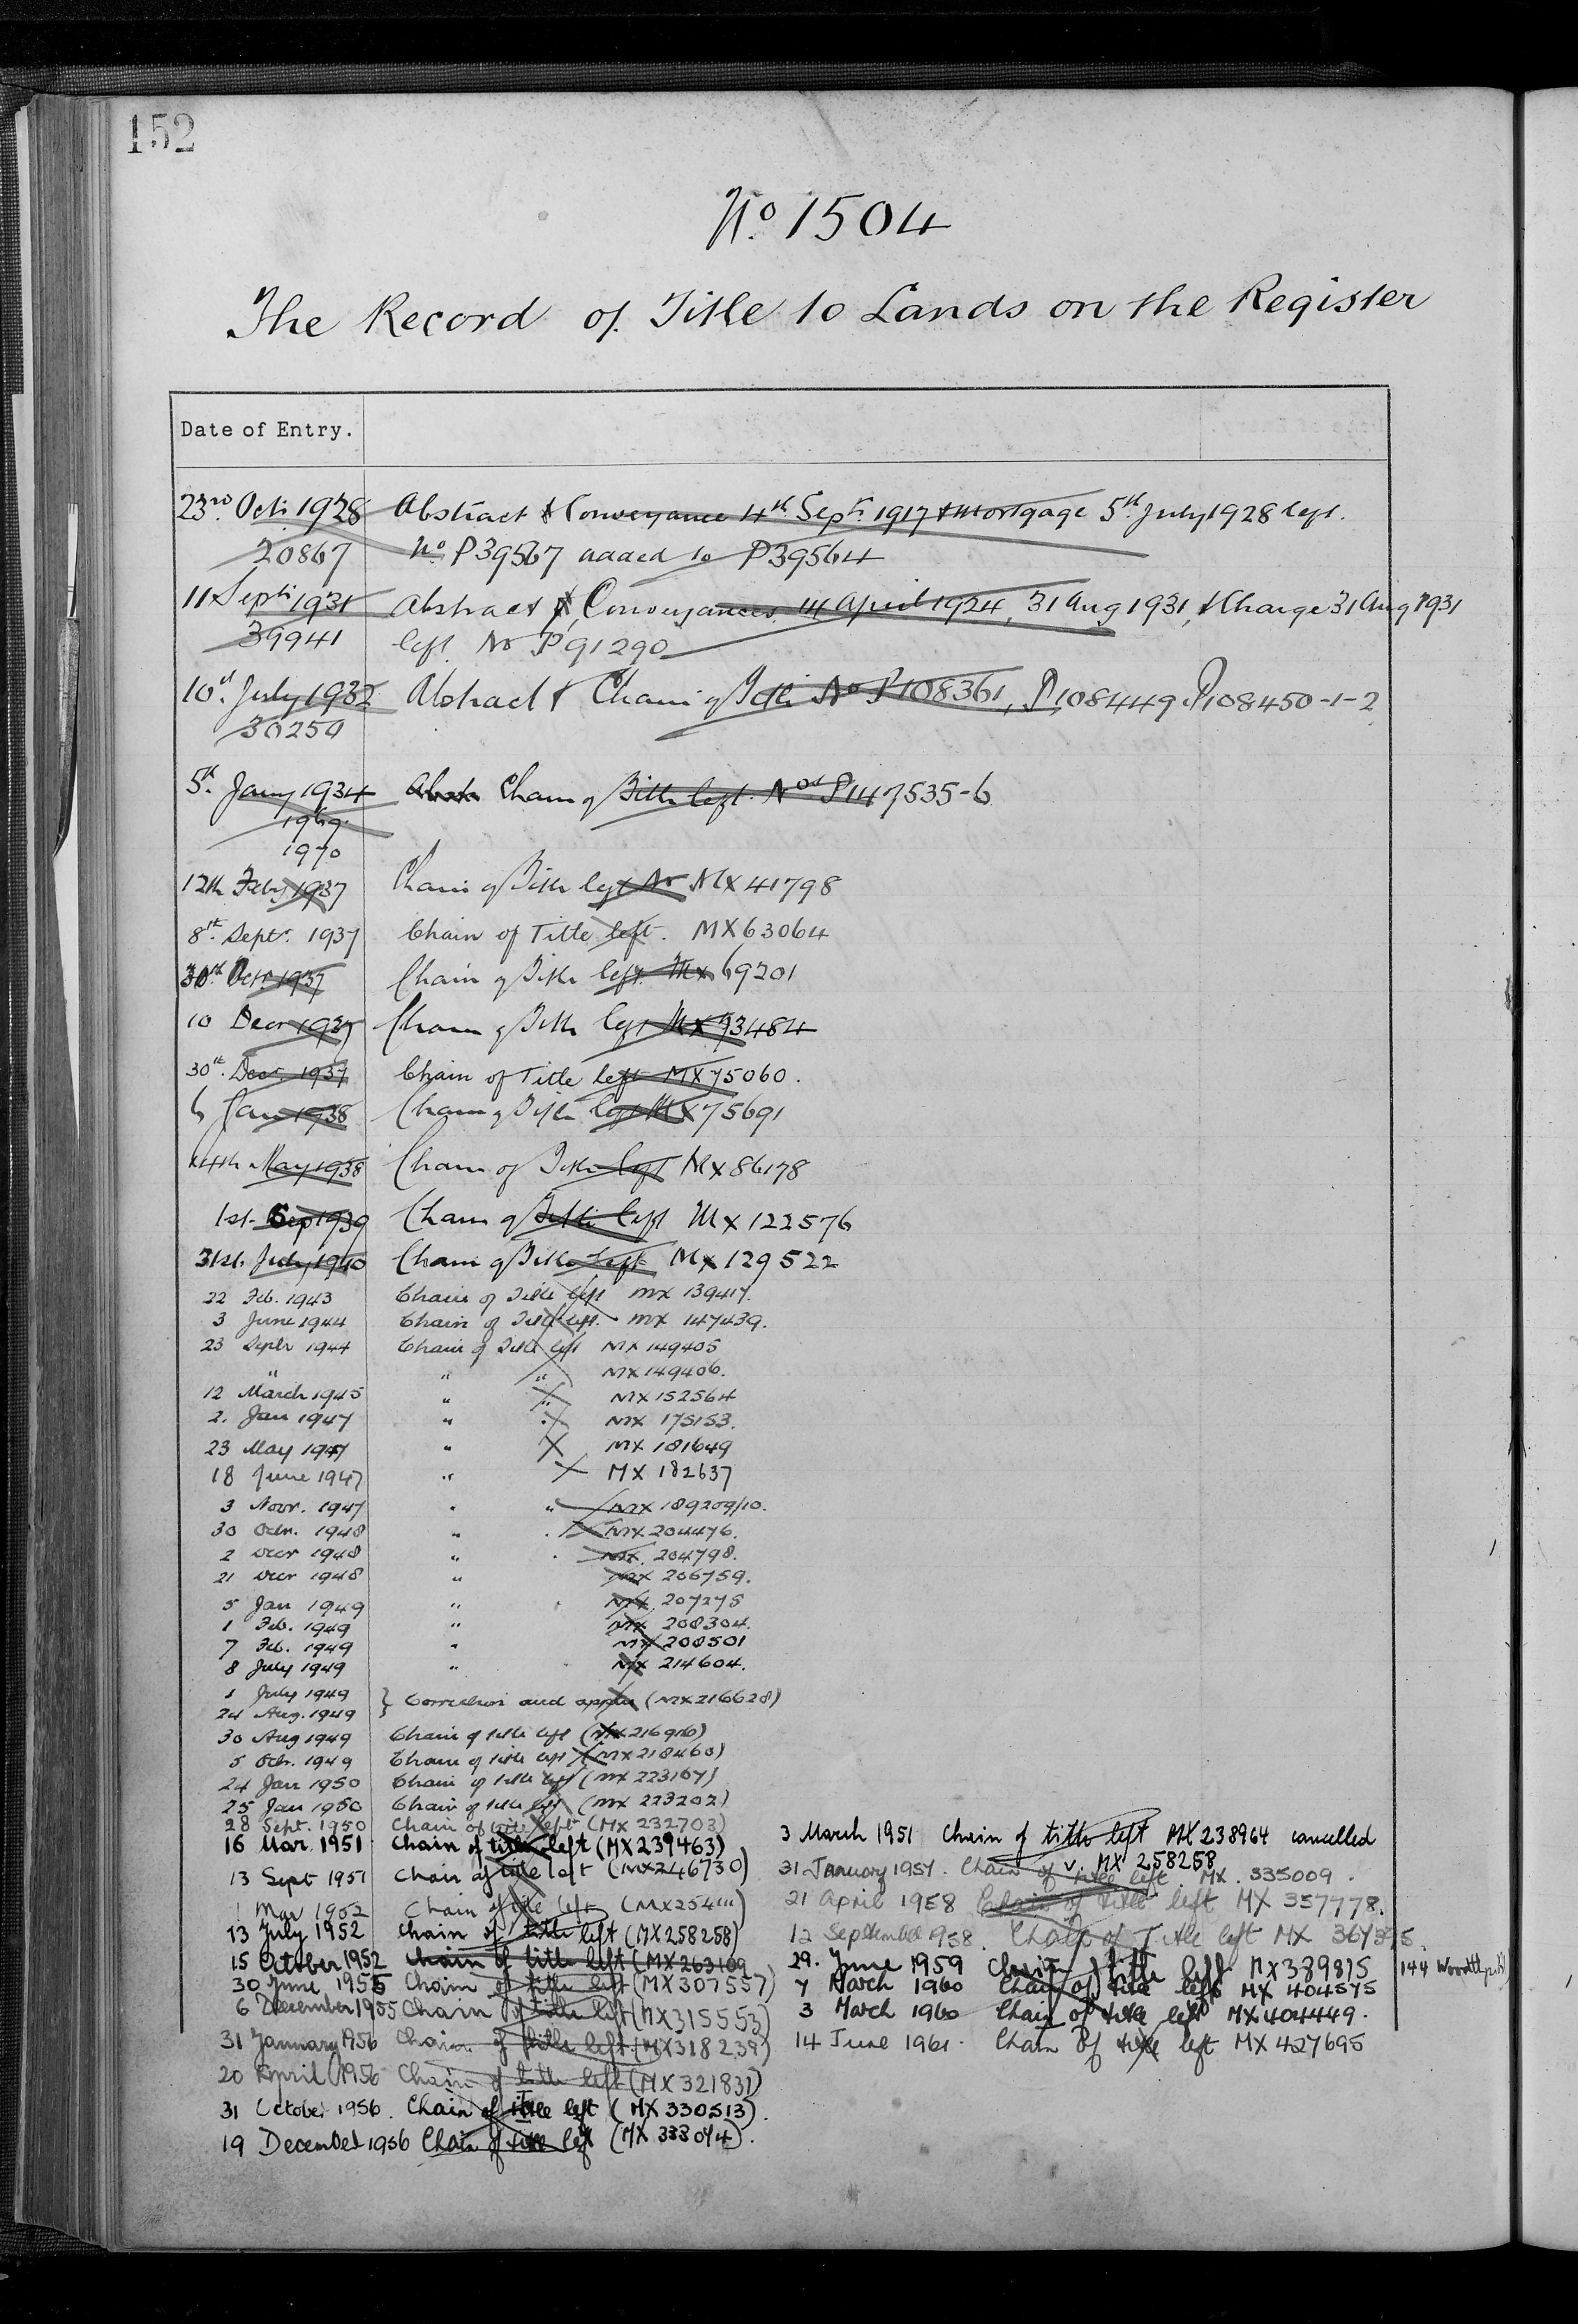 152
No. 1504
The Record of Title to Lands on the Register
Date of Entry.
23rd Oct: 1928 Abstract & Conveyance 4th Sept. 1917 & Mortgage 5th July 1928 left.
20867 No P39567 added to P39564
11 Sept: 1931 Abstract & Conveyances 14 April 1924, 31 Aug 1931, & Charge 31 Aug 1931
39941 left. No P91290
10th July 1932 Abstract & Chain of Title No P108361, P108449, P108450-1-2
30250
5th Jany 1934 Chain of Title left. Nos P147535-6
1969
1970
12th Feby 1937 Chain of Title left No MX 41798
8th Sept. 1937 Chain of Title left. MX63064
30th Oct. 1937 Chain of Title left. MX 69201
10 Decr 1937 Chain of Title left MX 73484
30th Decr. 1937 Chain of Title left MX75060.
6 Jan 1938 Chain of Title left MX75691
14th May 1938 Chain of Title left MX86178
1st Sep 1939 Chain of Title left MX122576
31st July 1940 Chain of Title left MX129522
22 Feb. 1943 Chain of Title left MX 139417.
3 June 1944 Chain of Title left. MX 147439.
23 Septr 1944 Chain of Title left MX 149405
" " " MX149406.
12 March 1945 " " MX152564
2. Jan 1947 " " MX 175153.
23 May 1947 " MX 181649
18 June 1947 " MX 182637
3 Novr. 1947 " " MX 189209/10.
30 Octr. 1948 " MX 204476.
2 Decr 1948 " MX. 204798.
21 Decr 1948 " MX 206759.
5 Jan 1949 " MX. 207275
1 Feb. 1949 " MX 208304.
7 Feb. 1949 " MX 208501
8 July 1949 " MX 214604.
1 July 1949 } Correction and appln (MX216628)
24 Aug. 1949
30 Aug 1949 Chain of title left (MX216916)
5 Octr. 1949 Chain of title left (MX218460)
24 Jan 1950 Chain of title left (MX 223167)
25 Jan 1950 Chain of title left (MX 223202)
28 Sept. 1950 Chain of title left (MX 232703)
16 Mar. 1951 Chain of title left (MX239463)
13 Sept 1951 Chain of title left (MX246730)
1 Mar 1952 Chain of title left (MX254111)
13 July 1952 Chain of title left (MX258258)
15 October 1952 Chain of title left (MX263109
30 June 1955 Chain of title left (MX307557)
6 December 1955 Chain of title left (MX315553)
31 January 1956 Chain of title left (MX318239)
20 April 1956 Chain of title left (MX321831)
31 October 1956. Chain of title left (MX330513).
19 December 1956 Chain of title left (MX 333074).
3 March 1951 Chain of title left MX238964 cancelled
v. MX 258258
31 January 1957. Chain of title left. MX. 335009.
21 April 1958 Chain of title left MX 357778.
12 September 1958. Chain of Title left MX 367395.
29. June 1959 Chain of title left MX389815 144
7 March 1960 Chain of title left MX 404575
3 March 1960 Chain of title left MX404449.
14 June 1961. Chain of title left MX427695